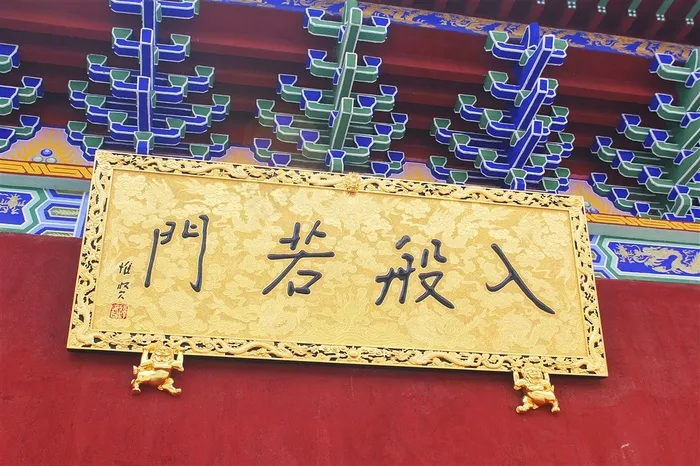 入般若門
惟賢